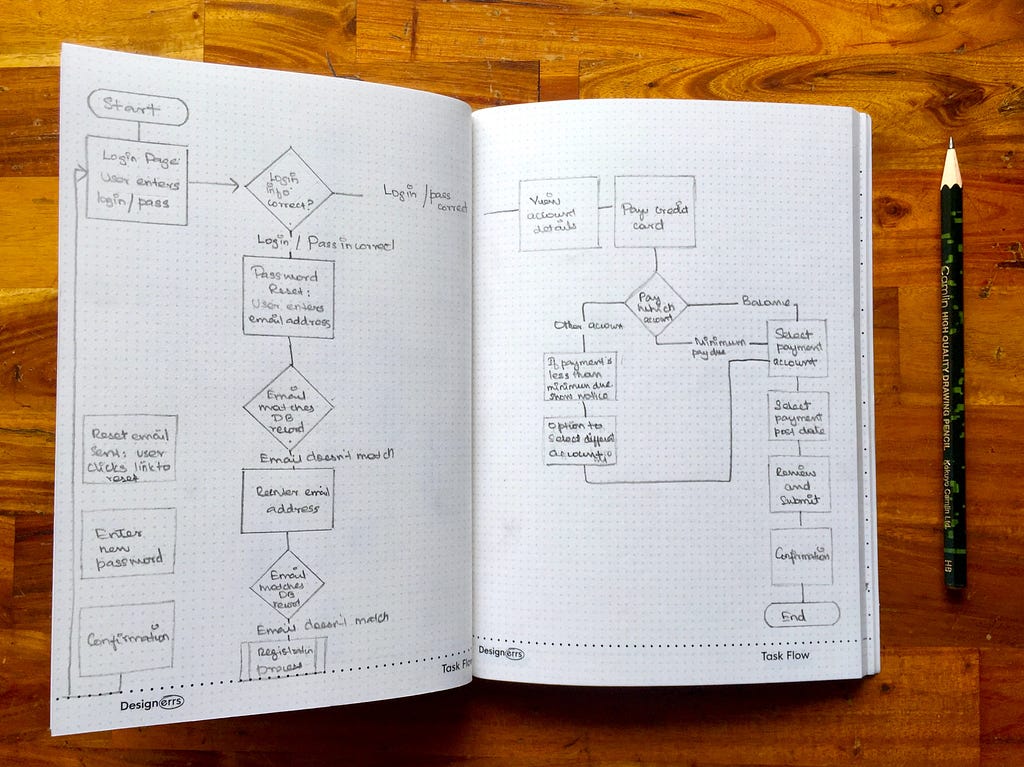 Start
Login Page:
User enters
login/pass
Login
info
correct?
Login/pass
correct
Login / Pass incorrect
Password
Reset:
User enters
email address
Email
matches
DB
record
Email doesn't match
Reset email
Sent: user
clicks link to
reset
Reenter email
address
Enter
new
password
Email
matches
DB
record
Email doesn't match
Confirmation
Registration
process
Task Flow
Designerrs
View
account
details
Pay credit
card
Pay
which
account
Balance
Other account
Minimum
pay due
Select
payment
account
If payment is
less than
minimum due
show notice
Option to
Select different
account
Select
payment
post date
Review
and
Submit
Confirmation
End
Designerrs
Task Flow
Camlin HIGH QUALITY DRAWING PENCIL Kokuyo Camlin Ltd. HB